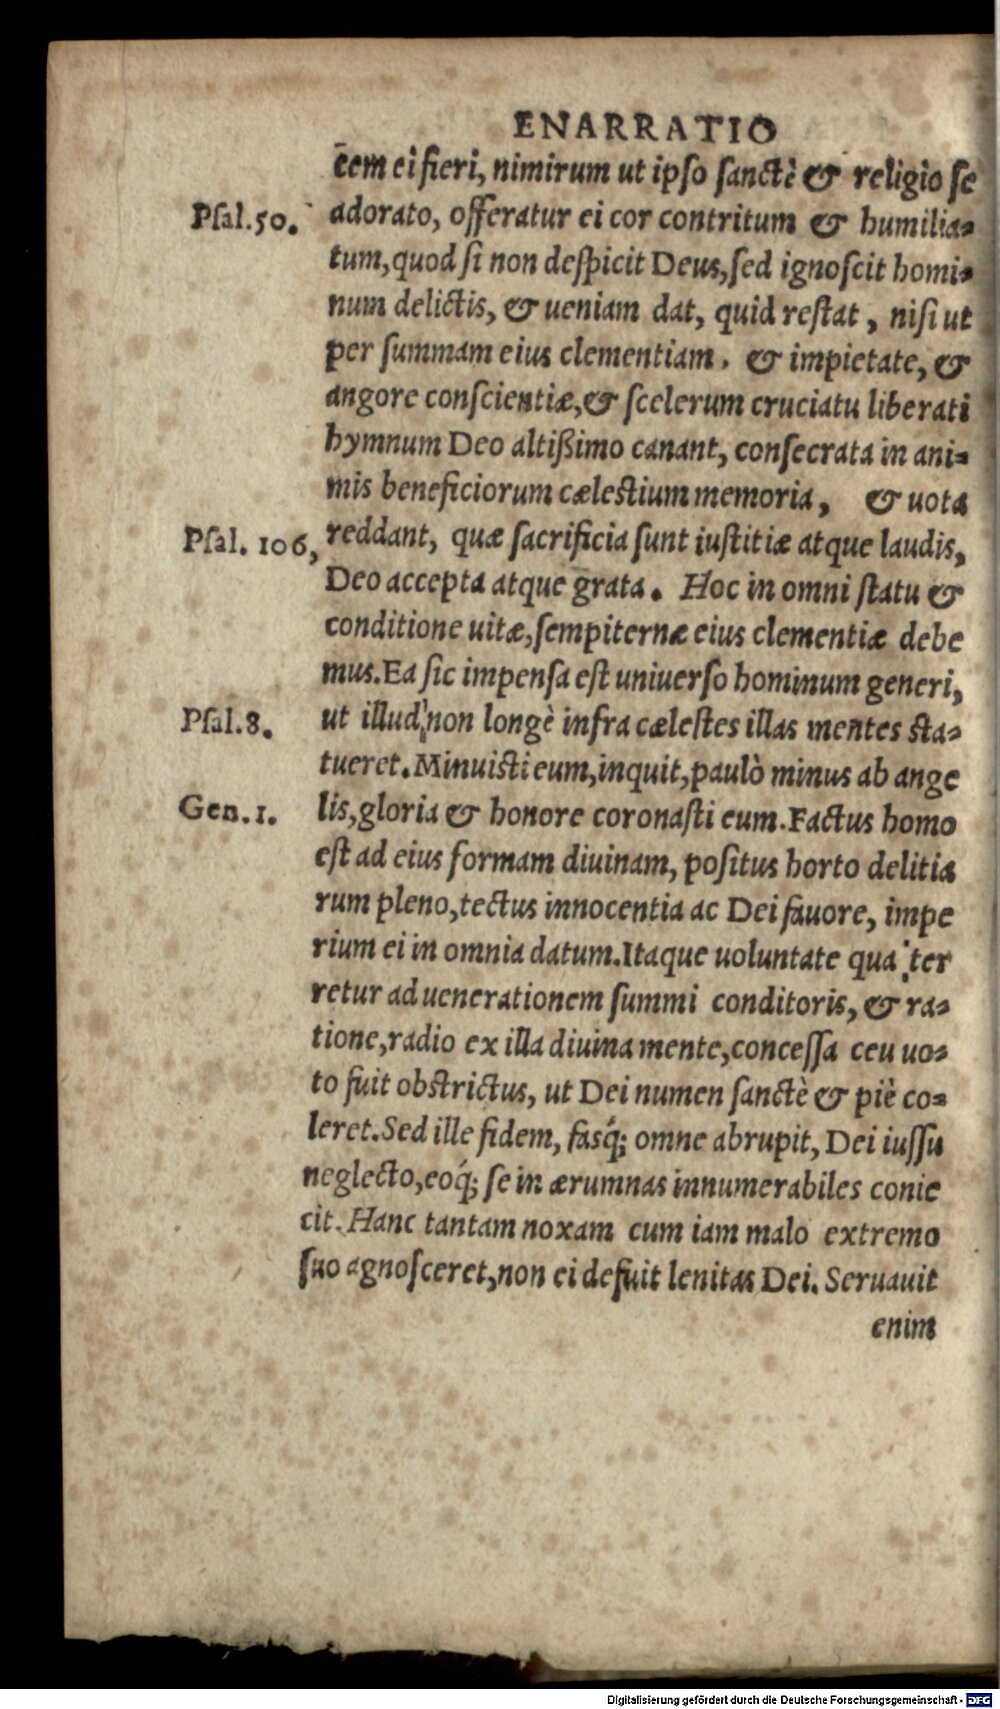 ENARRATIO
cem ei fieri, nimirum ut ipso sanctè & religio se
Psal.50. adorato, offeratur ei cor contritum & humilia-
tum, quod si non despicit Deus, sed ignoscit homi-
num delictis, & ueniam dat, quid restat, nisi ut
per summam eius clementiam. & impietate, &
angore conscientiæ, & scelerum cruciatu liberati
hymnum Deo altißimo canant, consecrata in ani-
mis beneficiorum cælestium memoria, & uota
Psal. 106, reddant, quæ sacrificia sunt iustitiæ atque laudis,
Deo accepta atque grata. Hoc in omni statu &
conditione uitæ, sempiternæ eius clementiæ debe
mus. Ea sic impensa est uniuerso hominum generi,
Psal.8. ut illud non longè infra cælestes illas mentes sta-
tueret. Minuisti eum, inquit, paulò minus ab ange
Gen.1. lis, gloria & honore coronasti eum. Factus homo
est ad eius formam diuinam, positus horto delitia
rum pleno, tectus innocentia ac Dei fauore, impe
rium ei in omnia datum. Itaque uoluntate qua ter
retur ad uenerationem summi conditoris, & ra-
tione, radio ex illa diuina mente, concessa ceu uo-
to fuit obstrictus, ut Dei numen sanctè & piè co-
leret. Sed ille fidem, fasq́; omne abrupit, Dei iussu
neglecto, eoq́; se in ærumnas innumerabiles conie
cit. Hanc tantam noxam cum iam malo extremo
suo agnosceret, non ei defuit lenitas Dei. Seruauit
enim
Digitalisierung gefördert durch die Deutsche Forschungsgemeinschaft - DFG